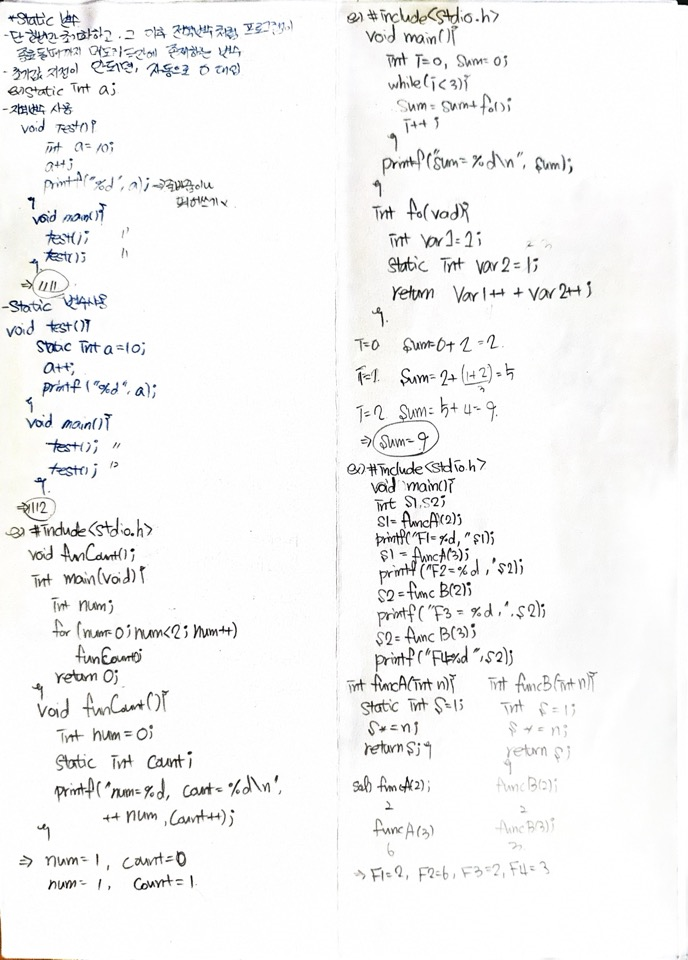 *Static 변수
- 단 한번만 초기화하고, 그 이후 전역변수처럼 프로그램이
종료될때까지 메모리공간에 존재하는 변수
- 초기값 지정이 안되면, 자동으로 0 대입
ex) static int a;
- 지역변수 사용
void test(){
int a=10;
a++;
printf("%d", a); →줄바꿈이나
띄어쓰기 x
}
void main(){
test(); 11
test(); 11
}
⇒ 1111
- Static 변수사용
void test(){
Static int a=10;
a++;
printf("%d", a);
}
void main(){
test(); 11
test(); 12
}
⇒ 1112
ex) #include<stdio.h>
void funCount();
int main(void){
int num;
for (num=0; num<2; num++)
funCount();
return 0;
}
void funCount(){
int num=0;
static int count;
printf("num=%d, count=%d\n",
++num, count++);
}
⇒ num=1, count=0
num=1, count=1
ex) #include<stdio.h>
void main(){
int i=0, sum=0;
while(i<3){
sum=sum+fo();
i++;
}
printf("sum=%d\n", sum);
}
int fo(void){
int var1=1;
static int var2=1;
return var1++ + var2++;
}
i=0 sum=0+2=2
i=1. sum=2+(1+2)=5
3
i=2 sum=5+4=9.
⇒ sum=9
ex) #include<stdio.h>
void main(){
int s1,s2;
s1=funcA(2);
printf("F1=%d,"s1);
s1=funcA(3);
printf("F2=%d,"s2);
s2=funcB(2);
printf("F3=%d,".s2);
s2=funcB(3);
printf("F4=%d",s2);
int funcA(int n){ int funcB(int n){
static int s=1; int s=1;
s*=n; s*=n;
return s;} return s;
}
sol) funcA(2); funcB(2);
2 2
funcA(3) funcB(3);
6 3
⇒ F1=2, F2=6, F3=2, F4=3